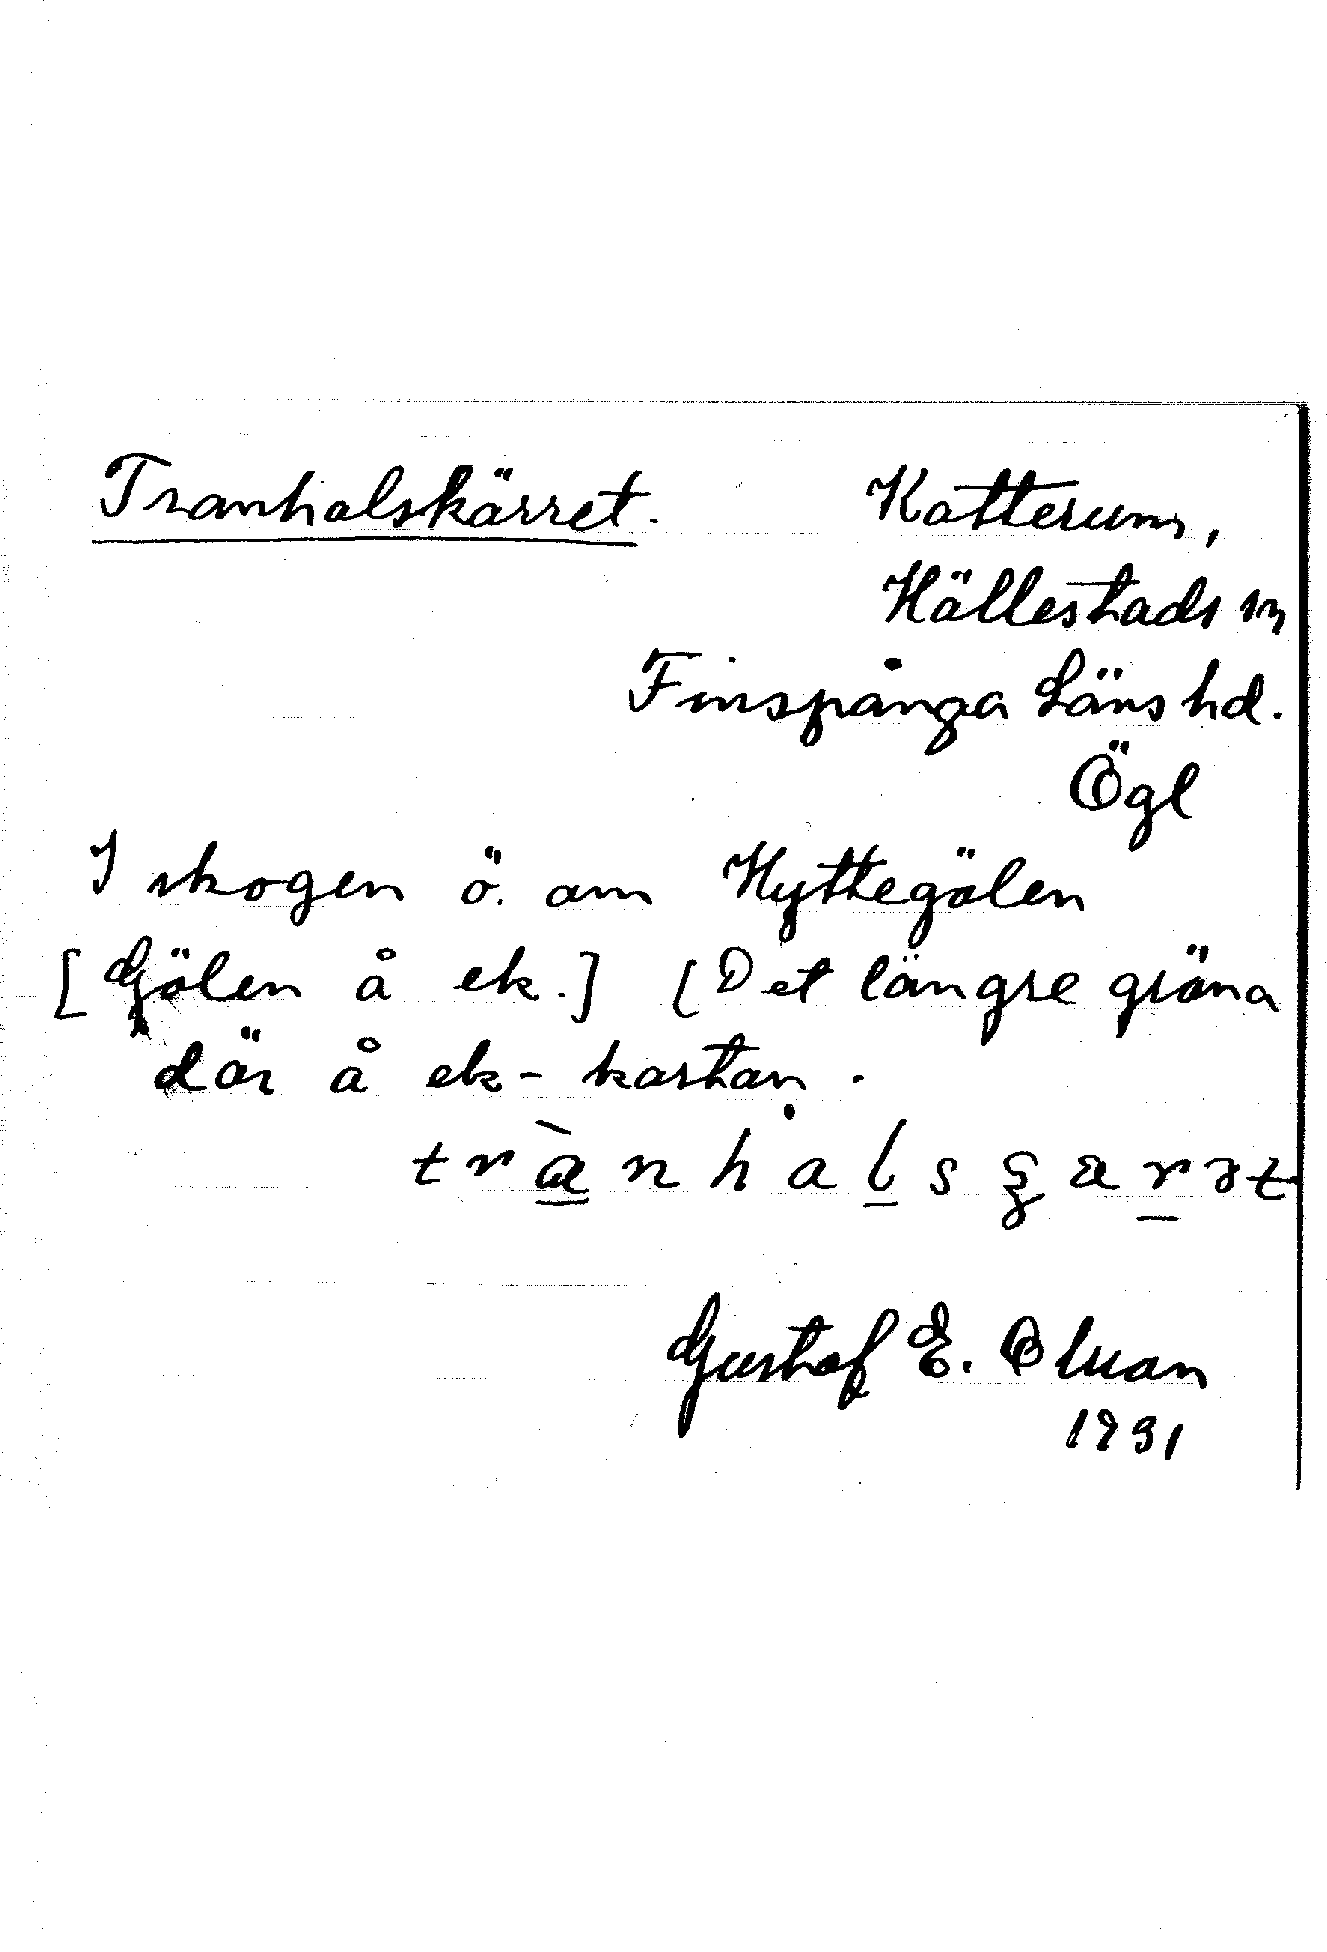 Tranhalskärret. Katterum,
Hällestads sn
Finspånga Läns hd.
Ögl
I skogen ö. om Hyttegölen
[Gölen å ek.] (Det längre gröna
där å ek-kartan.
Gustaf E. Olsson
1931